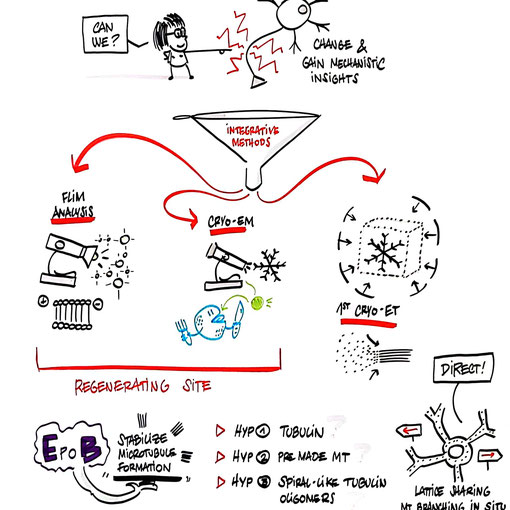 CAN
WE?
CHANGE &
GAIN MECHANISTIC
INSIGHTS
INTEGRATIVE
METHODS
FLIM
ANALYSIS
CRYO-EM
1ST CRYO-ET
REGENERATING SITE
DIRECT!
EPOB
STABILIZE
MICROTUBULE
FORMATION
HYP 1 TUBULIN ?
HYP 2 PREMADE MT ?
HYP 3 SPIRAL-LIKE TUBULIN
OLIGOMERS ?
LATTICE SHARING
MT BRANCHING IN SITU